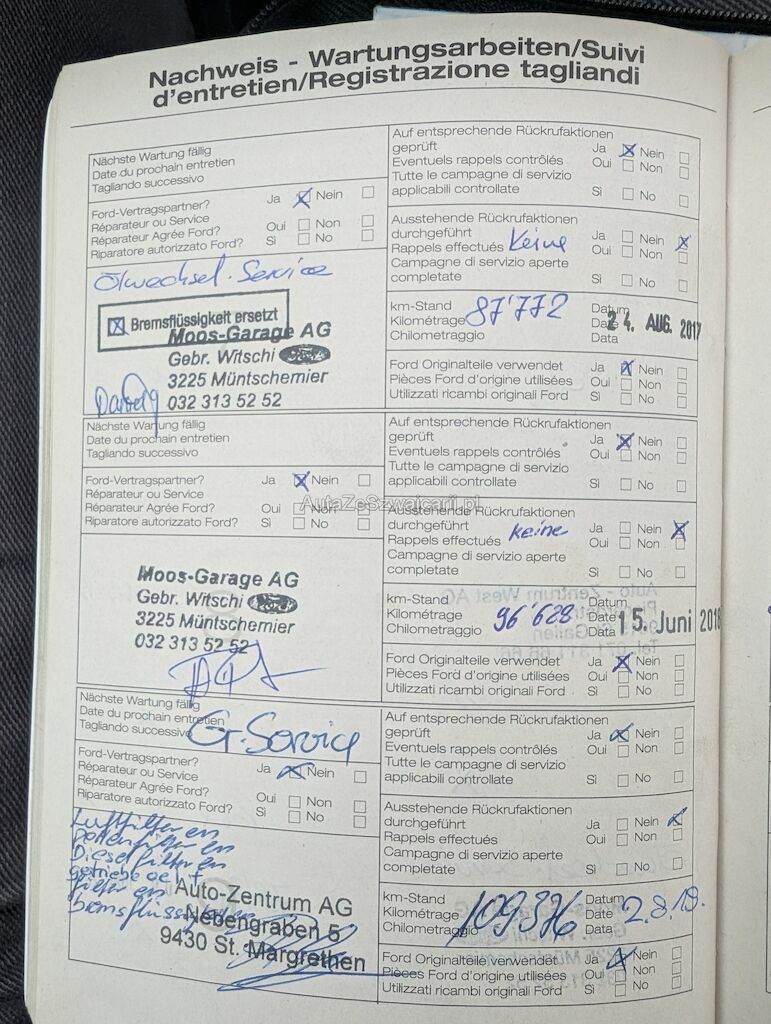 Nachweis - Wartungsarbeiten/Suivi
d'entretien/Registrazione tagliandi
Nächste Wartung fällig
Date du prochain entretien
Tagliando successivo
Ford-Vertragspartner? Ja Nein
Réparateur ou Service
Réparateur Agrée Ford? Oui Non
Riparatore autorizzato Ford? Sì No
Ölwechsel-Service
Bremsflüssigkeit ersetzt
Moos-Garage AG
Gebr. Witschi
3225 Müntschemier
032 313 52 52
Auf entsprechende Rückrufaktionen
geprüft Ja Nein
Eventuels rappels contrôlés Oui Non
Tutte le campagne di servizio
applicabili controllate Sì No
Ausstehende Rückrufaktionen
durchgeführt Ja Nein
Rappels effectués Keine Oui Non
Campagne di servizio aperte
completate Sì No
km-Stand Datum
Kilométrage 87'772 Date 24. AUG. 2017
Chilometraggio Data
Ford Originalteile verwendet Ja Nein
Pièces Ford d'origine utilisées Oui Non
Utilizzati ricambi originali Ford Sì No
Nächste Wartung fällig
Date du prochain entretien
Tagliando successivo
Ford-Vertragspartner? Ja Nein
Réparateur ou Service
Réparateur Agrée Ford? Oui Non
Riparatore autorizzato Ford? Sì No
Moos-Garage AG
Gebr. Witschi
3225 Müntschemier
032 313 52 52
Auf entsprechende Rückrufaktionen
geprüft Ja Nein
Eventuels rappels contrôlés Oui Non
Tutte le campagne di servizio
applicabili controllate Sì No
AutaZeSzwajcarii.pl
Ausstehende Rückrufaktionen
durchgeführt Ja Nein
Rappels effectués keine Oui Non
Campagne di servizio aperte
completate Sì No
km-Stand Datum
Kilométrage 96'628 Date 15. Juni 2018
Chilometraggio Data
Ford Originalteile verwendet Ja Nein
Pièces Ford d'origine utilisées Oui Non
Utilizzati ricambi originali Ford Sì No
Nächste Wartung fällig
Date du prochain entretien
Tagliando successivo G. Service
Ford-Vertragspartner? Ja Nein
Réparateur ou Service
Réparateur Agrée Ford? Oui Non
Riparatore autorizzato Ford? Sì No
Luftfilter en
Pollenfilter en
Dieselfilter en
getriebe oel +
filter en
bremsflüss
Auto-Zentrum AG
Nebengraben 5
9430 St. Margrethen
Auf entsprechende Rückrufaktionen
geprüft Ja Nein
Eventuels rappels contrôlés Oui Non
Tutte le campagne di servizio
applicabili controllate Sì No
Ausstehende Rückrufaktionen
durchgeführt Ja Nein
Rappels effectués Oui Non
Campagne di servizio aperte
completate Sì No
km-Stand Datum
Kilométrage 109376 Date 2.8.19.
Chilometraggio Data
Ford Originalteile verwendet Ja Nein
Pièces Ford d'origine utilisées Oui Non
Utilizzati ricambi originali Ford Sì No